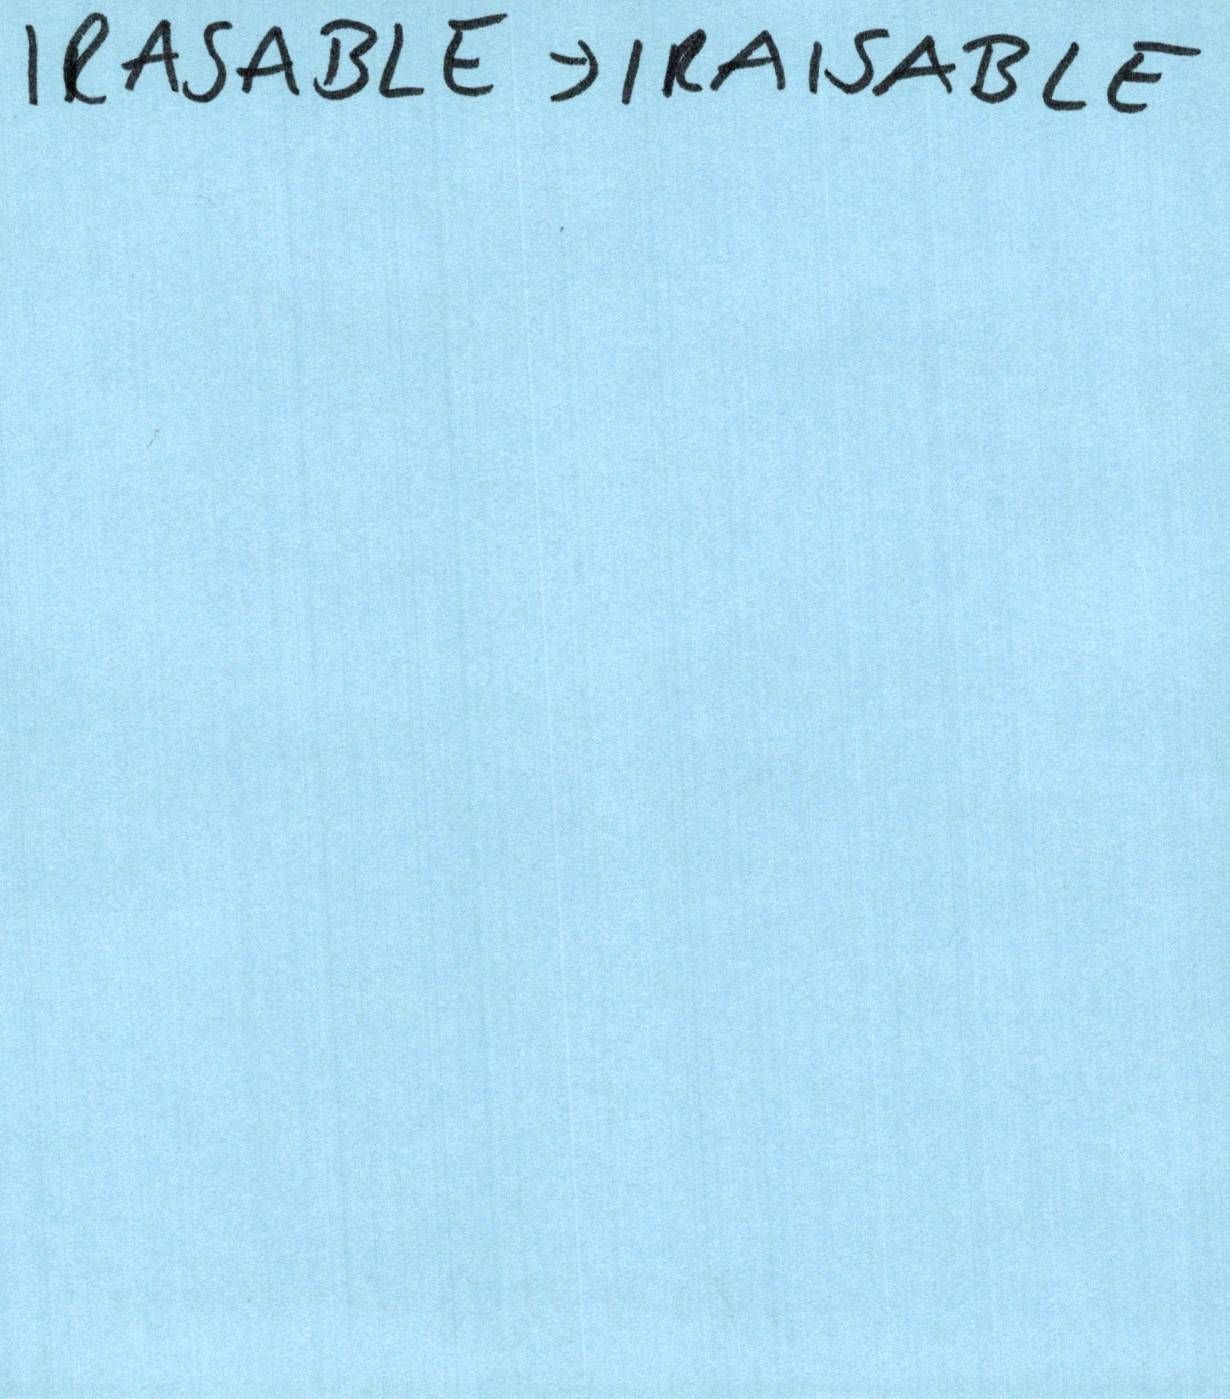 IRASABLE → IRAISABLE